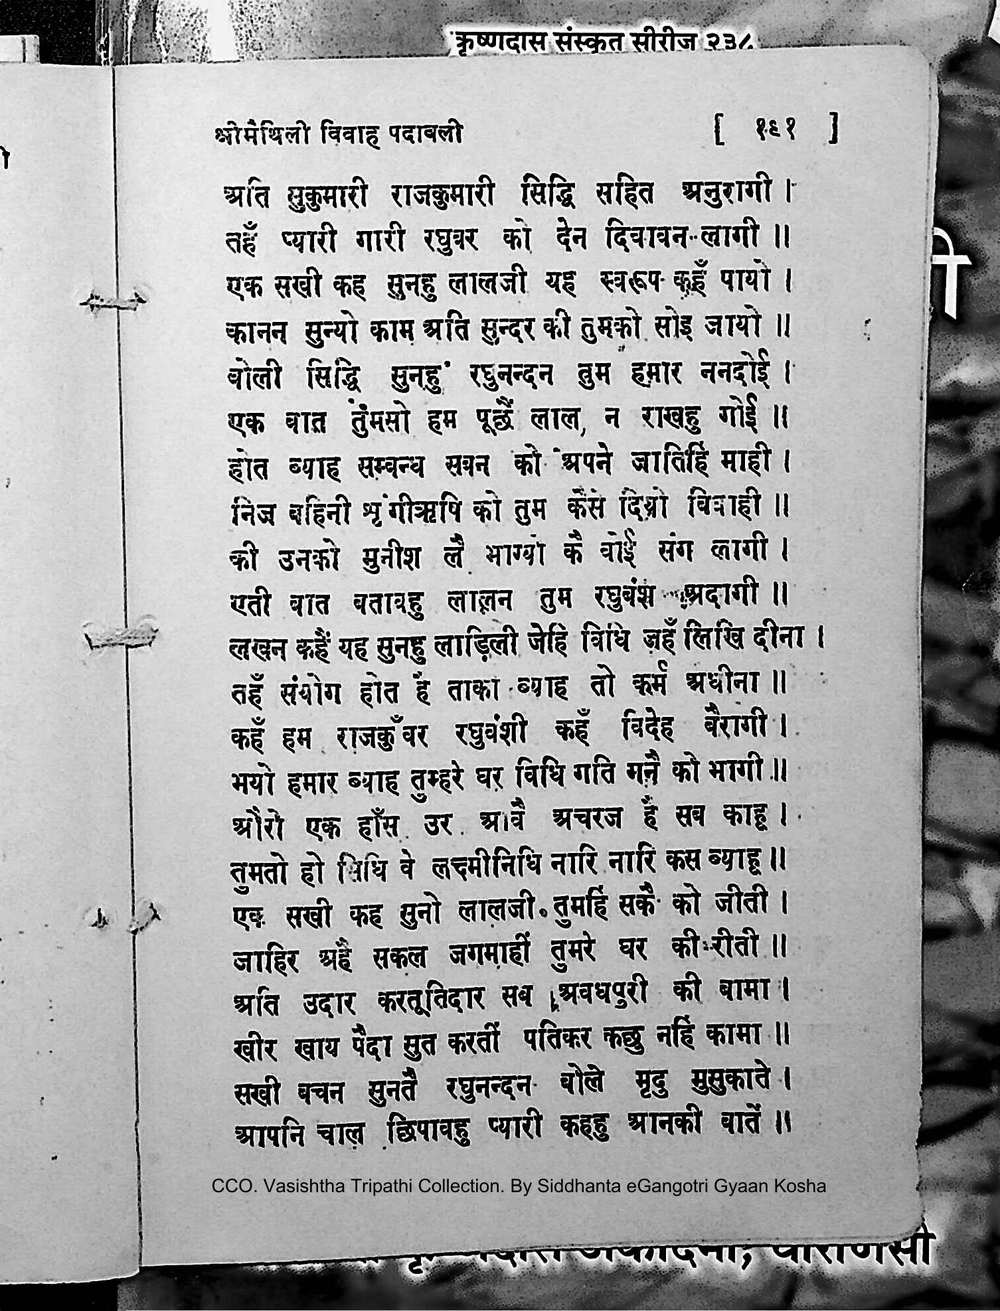 कृष्णदास संस्कृत सीरीज २३८
श्रीमैथिली विवाह पदावली [ १६१ ]
अति सुकुमारी राजकुमारी सिद्धि सहित अनुरागी ।
तहँ प्यारी गारी रघुवर को देन दिवावन लागी ॥
एक सखी कह सुनहु लालजी यह स्वरूप कहँ पायो ।
कानन सुन्यो काम अति सुन्दर की तुमको सोइ जायो ॥
बोली सिद्धि सुनहुं रघुनन्दन तुम हमार ननदोई ।
एक बात तुंमसो हम पूछैं लाल, न राखहु गोई ॥
होत ब्याह सम्बन्ध सबन को अपने जातिहिं माही ।
निज बहिनी शृंगीऋषि को तुम कैसे दियो विवाही ॥
की उनको मुनीश लै भाग्यो कै वोई संग लागी ।
एती बात बतावहु लालन तुम रघुबंश अदागी ॥
लखन कहैं यह सुनहु लाड़िली जेहि विधि जहँ लिखि दीना ।
तहँ संयोग होत है ताका ब्याह तो कर्म अधीना ॥
कहँ हम राजकुँवर रघुवंशी कहँ विदेह बैरागी ।
भयो हमार ब्याह तुम्हरे घर विधि गति गनै को भागी ॥
औरो एक हाँस उर आवै अचरज है सब काहू ।
तुमतो हो सिधि वे लक्ष्मीनिधि नारि नारि कस ब्याहू ॥
एक सखी कह सुनो लालजी तुमहिं सकै को जीती ।
जाहिर अहै सकल जगमाहीं तुमरे घर की रीती ॥
अति उदार करतूतिदार सब अवधपुरी की बामा ।
खीर खाय पैदा सुत करतीं पतिकर कछु नहिं कामा ॥
सखी बचन सुनतै रघुनन्दन बोले मृदु मुसुकाते ।
आपनि चाल छिपावहु प्यारी कहहु आनकी बातें ॥
CCO. Vasishtha Tripathi Collection. By Siddhanta eGangotri Gyaan Kosha